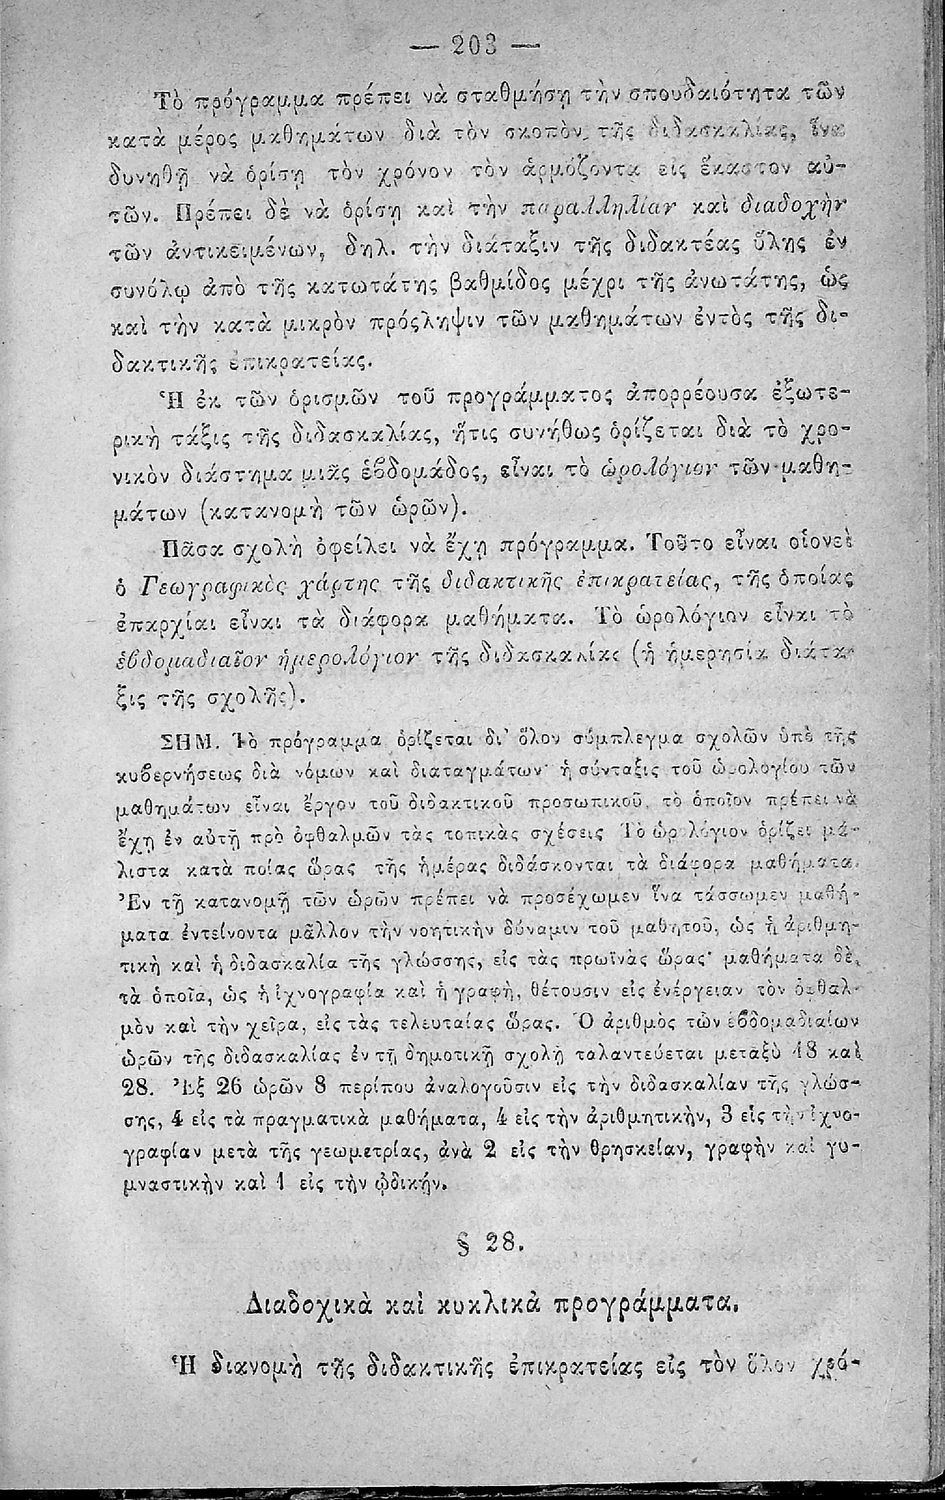 — 203 —
Τὸ πρόγραμμα πρέπει νὰ σταθμήσῃ τὴν σπουδαιότητα τῶν
κατὰ μέρος μαθημάτων διὰ τὸν σκοπὸν τῆς διδασκαλίας, ἵνα
δυνηθῇ νὰ ὁρίσῃ τὸν χρόνον τὸν ἁρμόζοντα εἰς ἕκαστον αὐ-
τῶν. Πρέπει δὲ νὰ ὁρίσῃ καὶ τὴν παραλληλίαν καὶ διαδοχὴν
τῶν ἀντικειμένων, δηλ. τὴν διάταξιν τῆς διδακτέας ὕλης ἐν
συνόλῳ ἀπὸ τῆς κατωτάτης βαθμίδος μέχρι τῆς ἀνωτάτης, ὡς
καὶ τὴν κατὰ μικρὸν πρόςληψιν τῶν μαθημάτων ἐντὸς τῆς δι-
δακτικῆς ἐπικρατείας.
Ἡ ἐκ τῶν ὁρισμῶν τοῦ προγράμματος ἀπορρέουσα ἐξωτε-
ρικὴ τάξις τῆς διδασκαλίας, ἥτις συνήθως ὁρίζεται διὰ τὸ χρο-
νικὸν διάστημα μιᾶς ἑβδομάδος, εἶναι τὸ ὡρολόγιον τῶν μαθη-
μάτων (κατανομὴ τῶν ὡρῶν).
Πᾶσα σχολὴ ὀφείλει νὰ ἔχῃ πρόγραμμα. Τοῦτο εἶναι οἱονεὶ
ὁ Γεωγραφικὸς χάρτης τῆς διδακτικῆς ἐπικρατείας, τῆς ὁποίας
ἐπαρχίαι εἶναι τὰ διάφορα μαθήματα. Τὸ ὡρολόγιον εἶναι τὸ
ἑβδομαδιαῖον ἡμερολόγιον τῆς διδασκαλίας (ἡ ἡμερησία διάτα-
ξις τῆς σχολῆς).
ΣΗΜ. Τὸ πρόγραμμα ὁρίζεται δι' ὅλον σύμπλεγμα σχολῶν ὑπὸ τῆς
κυβερνήσεως διὰ νόμων καὶ διαταγμάτων· ἡ σύνταξις τοῦ ὡρολογίου τῶν
μαθημάτων εἶναι ἔργον τοῦ διδακτικοῦ προσωπικοῦ, τὸ ὁποῖον πρέπει νὰ
ἔχῃ ἐν αὐτῇ πρὸ ὀφθαλμῶν τὰς τοπικὰς σχέσεις Τὸ ὡρολόγιον ὁρίζει μά-
λιστα κατὰ ποίας ὥρας τῆς ἡμέρας διδάσκονται τὰ διάφορα μαθήματα.
Ἐν τῇ κατανομῇ τῶν ὡρῶν πρέπει νὰ προσέχωμεν ἵνα τάσσωμεν μαθή-
ματα ἐντείνοντα μᾶλλον τὴν νοητικὴν δύναμιν τοῦ μαθητοῦ, ὡς ἡ ἀριθμη-
τικὴ καὶ ἡ διδασκαλία τῆς γλώσσης, εἰς τὰς πρωϊνὰς ὥρας· μαθήματα δὲ,
τὰ ὁποῖα, ὡς ἡ ἰχνογραφία καὶ ἡ γραφὴ, θέτουσιν εἰς ἐνέργειαν τὸν ὀφθαλ-
μὸν καὶ τὴν χεῖρα, εἰς τὰς τελευταίας ὥρας. Ὁ ἀριθμὸς τῶν ἑβδομαδιαίων
ὡρῶν τῆς διδασκαλίας ἐν τῇ δημοτικῇ σχολῇ ταλαντεύεται μεταξὺ 18 καὶ
28. Ἐξ 26 ὡρῶν 8 περίπου ἀναλογοῦσιν εἰς τὴν διδασκαλίαν τῆς γλώσ-
σης, 4 εἰς τὰ πραγματικὰ μαθήματα, 4 εἰς τὴν ἀριθμητικὴν, 3 εἰς τὴν ἰχνο-
γραφίαν μετὰ τῆς γεωμετρίας, ἀνὰ 2 εἰς τὴν θρησκείαν, γραφὴν καὶ γυ-
μναστικὴν καὶ 1 εἰς τὴν ᾠδικήν.
§ 28.
Διαδοχικὰ καὶ κυκλικὰ προγράμματα.
Ἡ διανομὴ τῆς διδακτικῆς ἐπικρατείας εἰς τὸν ὅλον χρό-